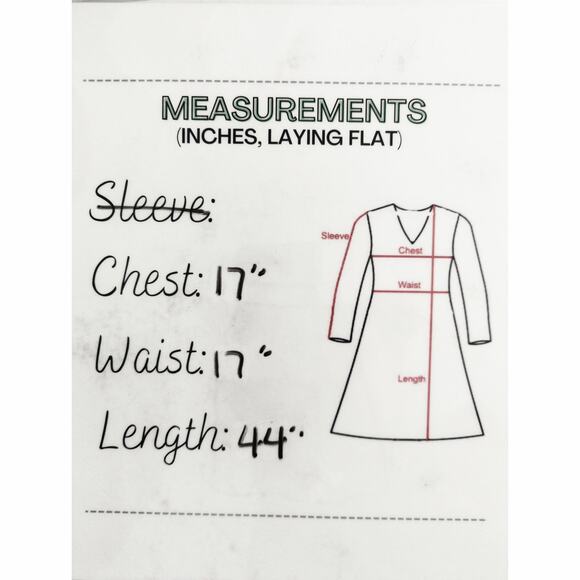 MEASUREMENTS
(INCHES, LAYING FLAT)
Sleeve:
Chest: 17"
Waist: 17"
Length: 44"
Sleeve
Chest
Waist
Length